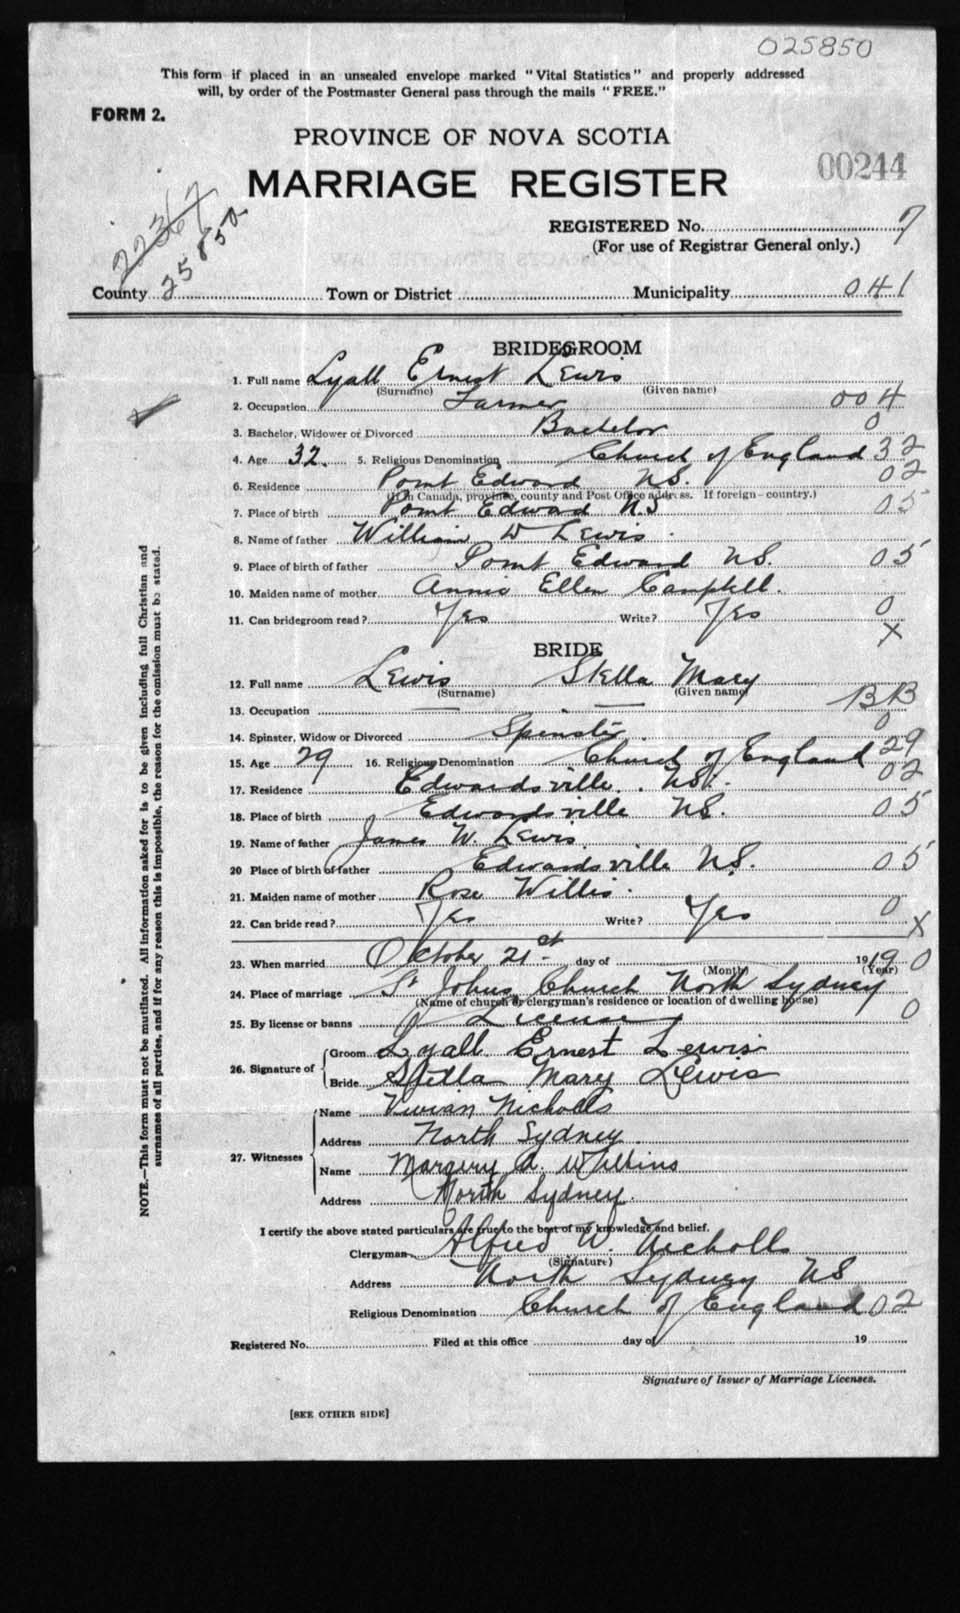 025850
This form if placed in an unsealed envelope marked "Vital Statistics" and properly addressed
will, by order of the Postmaster General pass through the mails "FREE."
FORM 2.
PROVINCE OF NOVA SCOTIA
00244
MARRIAGE REGISTER
REGISTERED No. 7
(For use of Registrar General only.)
22367
25850
County Town or District Municipality 041
BRIDEGROOM
1. Full name Lyall Ernest Lewis
(Surname) (Given name)
2. Occupation Farmer 004
3. Bachelor, Widower or Divorced Bachelor 0
4. Age 32. 5. Religious Denomination Church of England 32
6. Residence Point Edward N.S. 02
(If in Canada, province, county and Post Office address. If foreign - country.)
7. Place of birth Point Edward N.S 05
8. Name of father William D Lewis
9. Place of birth of father Point Edward N.S. 05
10. Maiden name of mother Annie Ellen Campbell.
11. Can bridegroom read? Yes Write? Yes 0
X
BRIDE
12. Full name Lewis Stella Mary
(Surname) (Given name)
13. Occupation — — BB
14. Spinster, Widow or Divorced Spinster. 0
15. Age 29 16. Religious Denomination Church of England 29
17. Residence Edwardsville. N.S. 02
18. Place of birth Edwardsville N.S. 05
19. Name of father James W. Lewis.
20 Place of birth of father Edwardsville N.S. 05
21. Maiden name of mother Rose Willis.
22. Can bride read? Yes Write? Yes 0
X
23. When married October 21st day of 1919 0
(Month) (Year)
24. Place of marriage St Johns Church North Sydney
(Name of church or clergyman's residence or location of dwelling house)
25. By license or banns License 0
26. Signature of Groom Lyall Ernest Lewis
Bride Stella Mary Lewis
27. Witnesses Name Vivian Nicholls
Address North Sydney.
Name Margery A. Wilkins
Address North Sydney.
I certify the above stated particulars are true to the best of my knowledge and belief.
Clergyman Alfred W. Nicholls
(Signature)
Address North Sydney NS
Religious Denomination Church of England 02
Registered No. Filed at this office day of 19
Signature of Issuer of Marriage Licenses.
[SEE OTHER SIDE]
NOTE.—This form must not be mutilated. All information asked for is to be given including full Christian and
surnames of all parties, and if for any reason this is impossible, the reason for the omission must be stated.